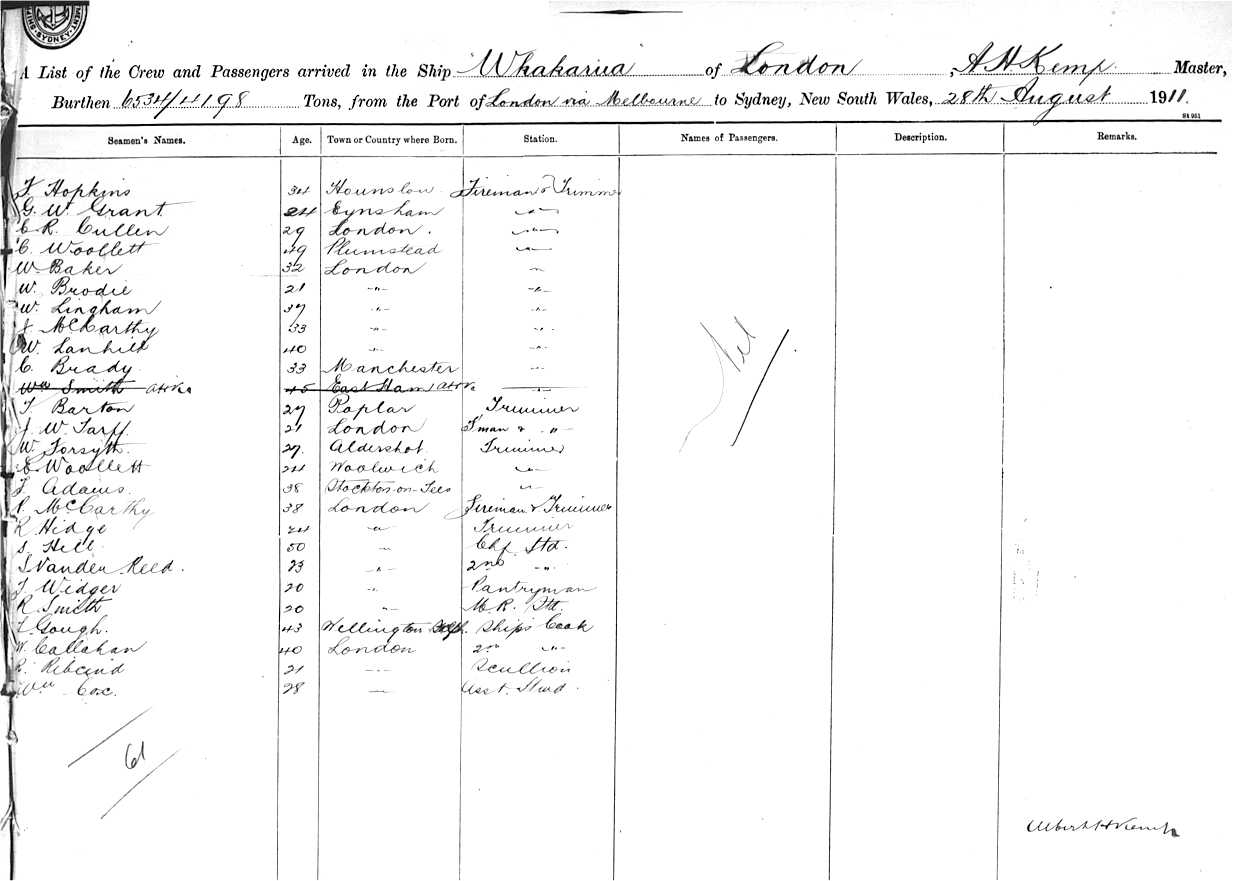 SYDNEY
A List of the Crew and Passengers arrived in the Ship Whakarua of London, A H Kemp Master,
Burthen 6534/4198 Tons, from the Port of London via Melbourne to Sydney, New South Wales, 28th August 1911.
St 951
Seamen's Names. Age. Town or Country where Born. Station. Names of Passengers. Description. Remarks.
F. Hopkins 34 Hounslow Fireman & Trimmer
G. W. Grant 24 Eynsham -"-
C. R. Cullen 29 London. -"-
C. Woollett 49 Plumstead -"-
W Baker 32 London -"-
W. Brodie 21 -"- -"-
W. Lingham 37 -"- -"-
J. McCarthy 33 -"- -"-
W. Lanhilt 40 -"- -"-
C. Brady 33 Manchester -"-
Wm Smith AHK. 45 East Ham AHK. -"-
T. Barton 27 Poplar Trimmer
J. W. Tarff 21 London F'man & -"-
W. Forsyth. 27. Aldershot Trimmer
E. Woollett 24 Woolwich -"-
J. Adams. 38 Stockton-on-Tees -"-
P. McCarthy 38 London Fireman & Trimmer
R Hidge 24 -"- Trimmer
S. Hill 50 -"- Chf Std.
J Vander Reed. 23 -"- 2nd -"-
J Widger 20 -"- Pantryman
R. Smith 20 -"- M. R. Std.
F Gough. 43 Wellington Ships Cook
W. Callahan 40 London 2nd -"-
R. 21 -"- Scullion
Wm Cox. 28 -"- Asst. Stwd.
Nil
61
Albert H Kemp